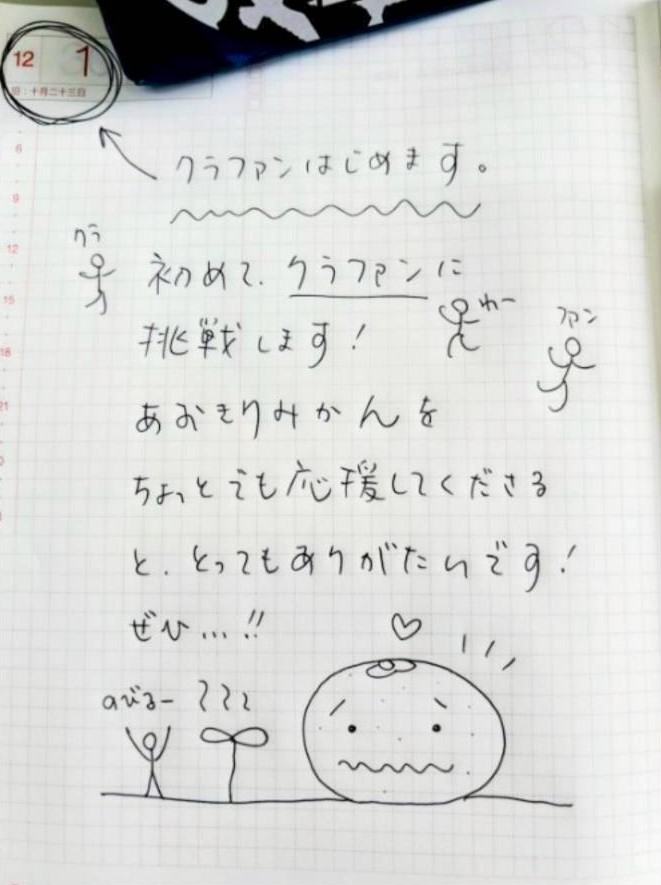 12 1
旧:十月二十三日
6
9
12
15
18
21
クラファンはじめます。
クラ
初めて、クラファンに
わー
ファン
挑戦します!
あおきりみかんを
ちょっとでも応援してくださる
と、とってもありがたいです!
ぜひ...!!
のびるー